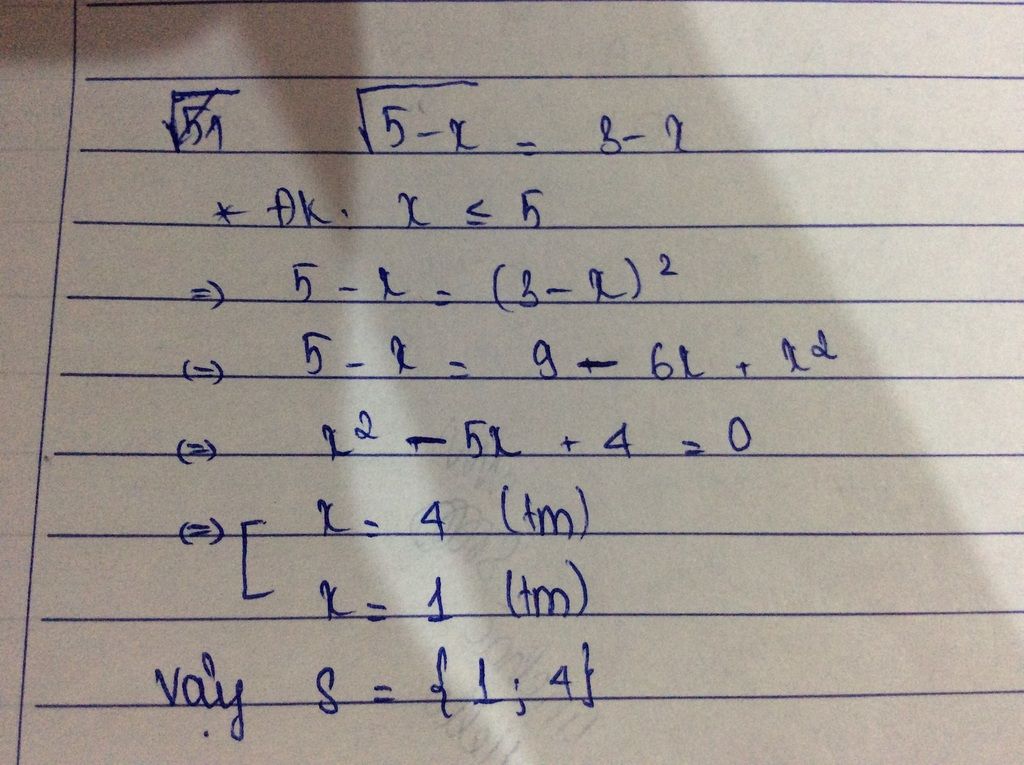 √(5-x) = 3-x
* ĐK: x ≤ 5
=> 5 - x = (3-x)²
<=> 5 - x = 9 - 6x + x²
<=> x² - 5x + 4 = 0
<=> [ x = 4 (tm)
x = 1 (tm)
Vậy S = {1; 4}